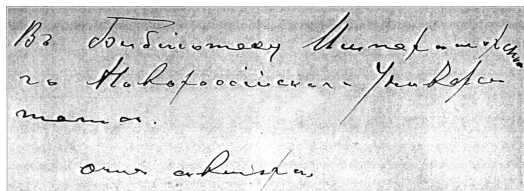 Въ Библіотеку Императорска
го Новороссійскаго Универси
тета.
отъ автора